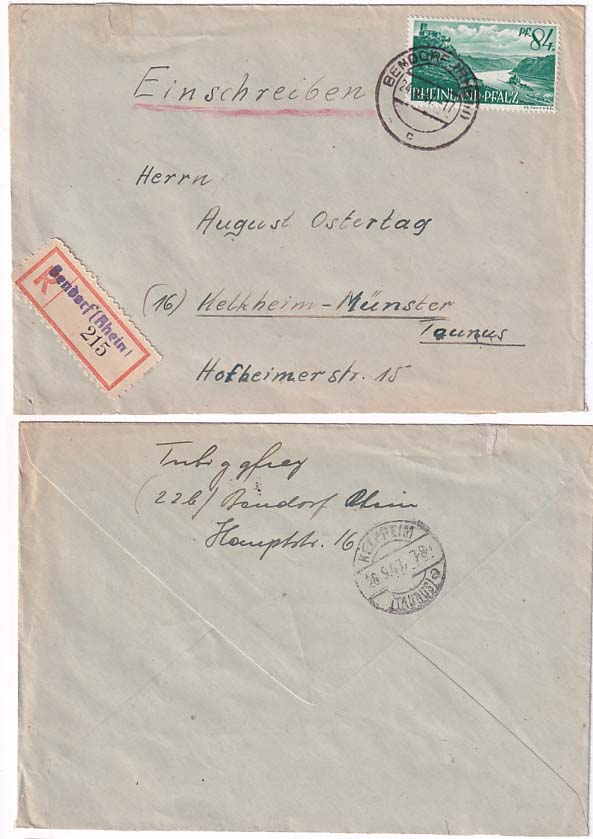 Einschreiben
PF. 84
RHEINLAND-PFALZ
BENDORF (RHEIN)
c
Herrn
August Ostertag
(16) Kelkheim-Münster
Taunus
Hofheimerstr. 15
R
Bendorf (Rhein)
215
(22b) Bendorf Rhein
Hauptstr. 16
KELKHEIM
26.9.47 7-8
(TAUNUS) a